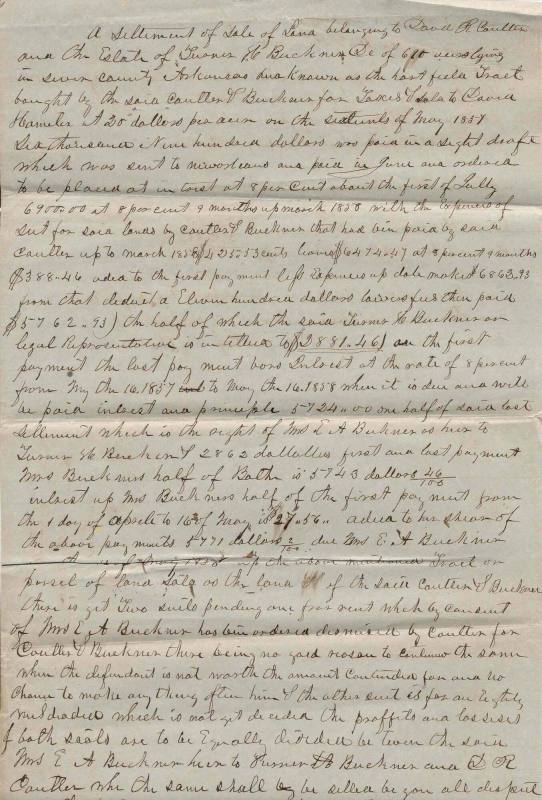 A Settlement of Sale of Land belonging to David R Coulter
and the Estate of Turner H Buckner De of 610 acres lying
in sevier county Arkansas & known as the hartfield Tract
bought by the said coulter & Buckner for Taxes & Sold to David
Hamiter at 20 dollars per acre on the of May 1857
Six thousand Nine hundred dollars was paid in a sight draft
which was sent to neworleans and paid in June and ordered
to be placed at intrist at 8 per Cent about the first of Jully
6900.00 at 8 per cent 9 months up march 1858 with the Expenses of
Sut for said lands by coulter & Buckner that had bin paid by said
coulter up to march 1858 $425.53 cents leaves $6474.47 at 8 percent 9 months
$388-46 aded to the first payment less Expenses up date makes $6862.93
from that deduct a Eleven hundred dollars lawers fee then paid
$5762.93) the half of which the said Turner H Buckner or
legal Representative is intitled to ($2881.46) on the first
payment the last payment bors Intrest at the rate of 8 percent
from May the 16.1857 to May the 16.1858 when it is due and will
be paid intrest and principle 5724.00 one half of said last
Settlement which is the right of Mrs E A Buckner as heir to
Turner H Buckner $ 2862 first and last payment
Mrs Buckners half of Bothe is 5743 dollars 46/100
intrest up Mrs Buckners half of the first payment from
the 1 day of aprele to 16 of May is $27.56 aded to hir shear of
the above payments 5771 dollars 2/100 due Mrs E. A Buckner
up the above mentioned Tract or
parsel of land Sold as the land of the said Coulter & Buckner
there is yet Two suits pending one for rent which by consent
of Mrs E A Buckner has bin ordered dismised by Coulter for
Coulter & Buckner there being no good reason to continue the same
when the defendant is not worth the amount contended for and no
chance to make anything often him & the other suit is for an Eighty
which is not yet decided the proffits and losses
of both are to be Equally divided be twen the said
Mrs E A Buckner heir to Turner H Buckner and D R
Coulter whe the same shall be setled be yon all disput